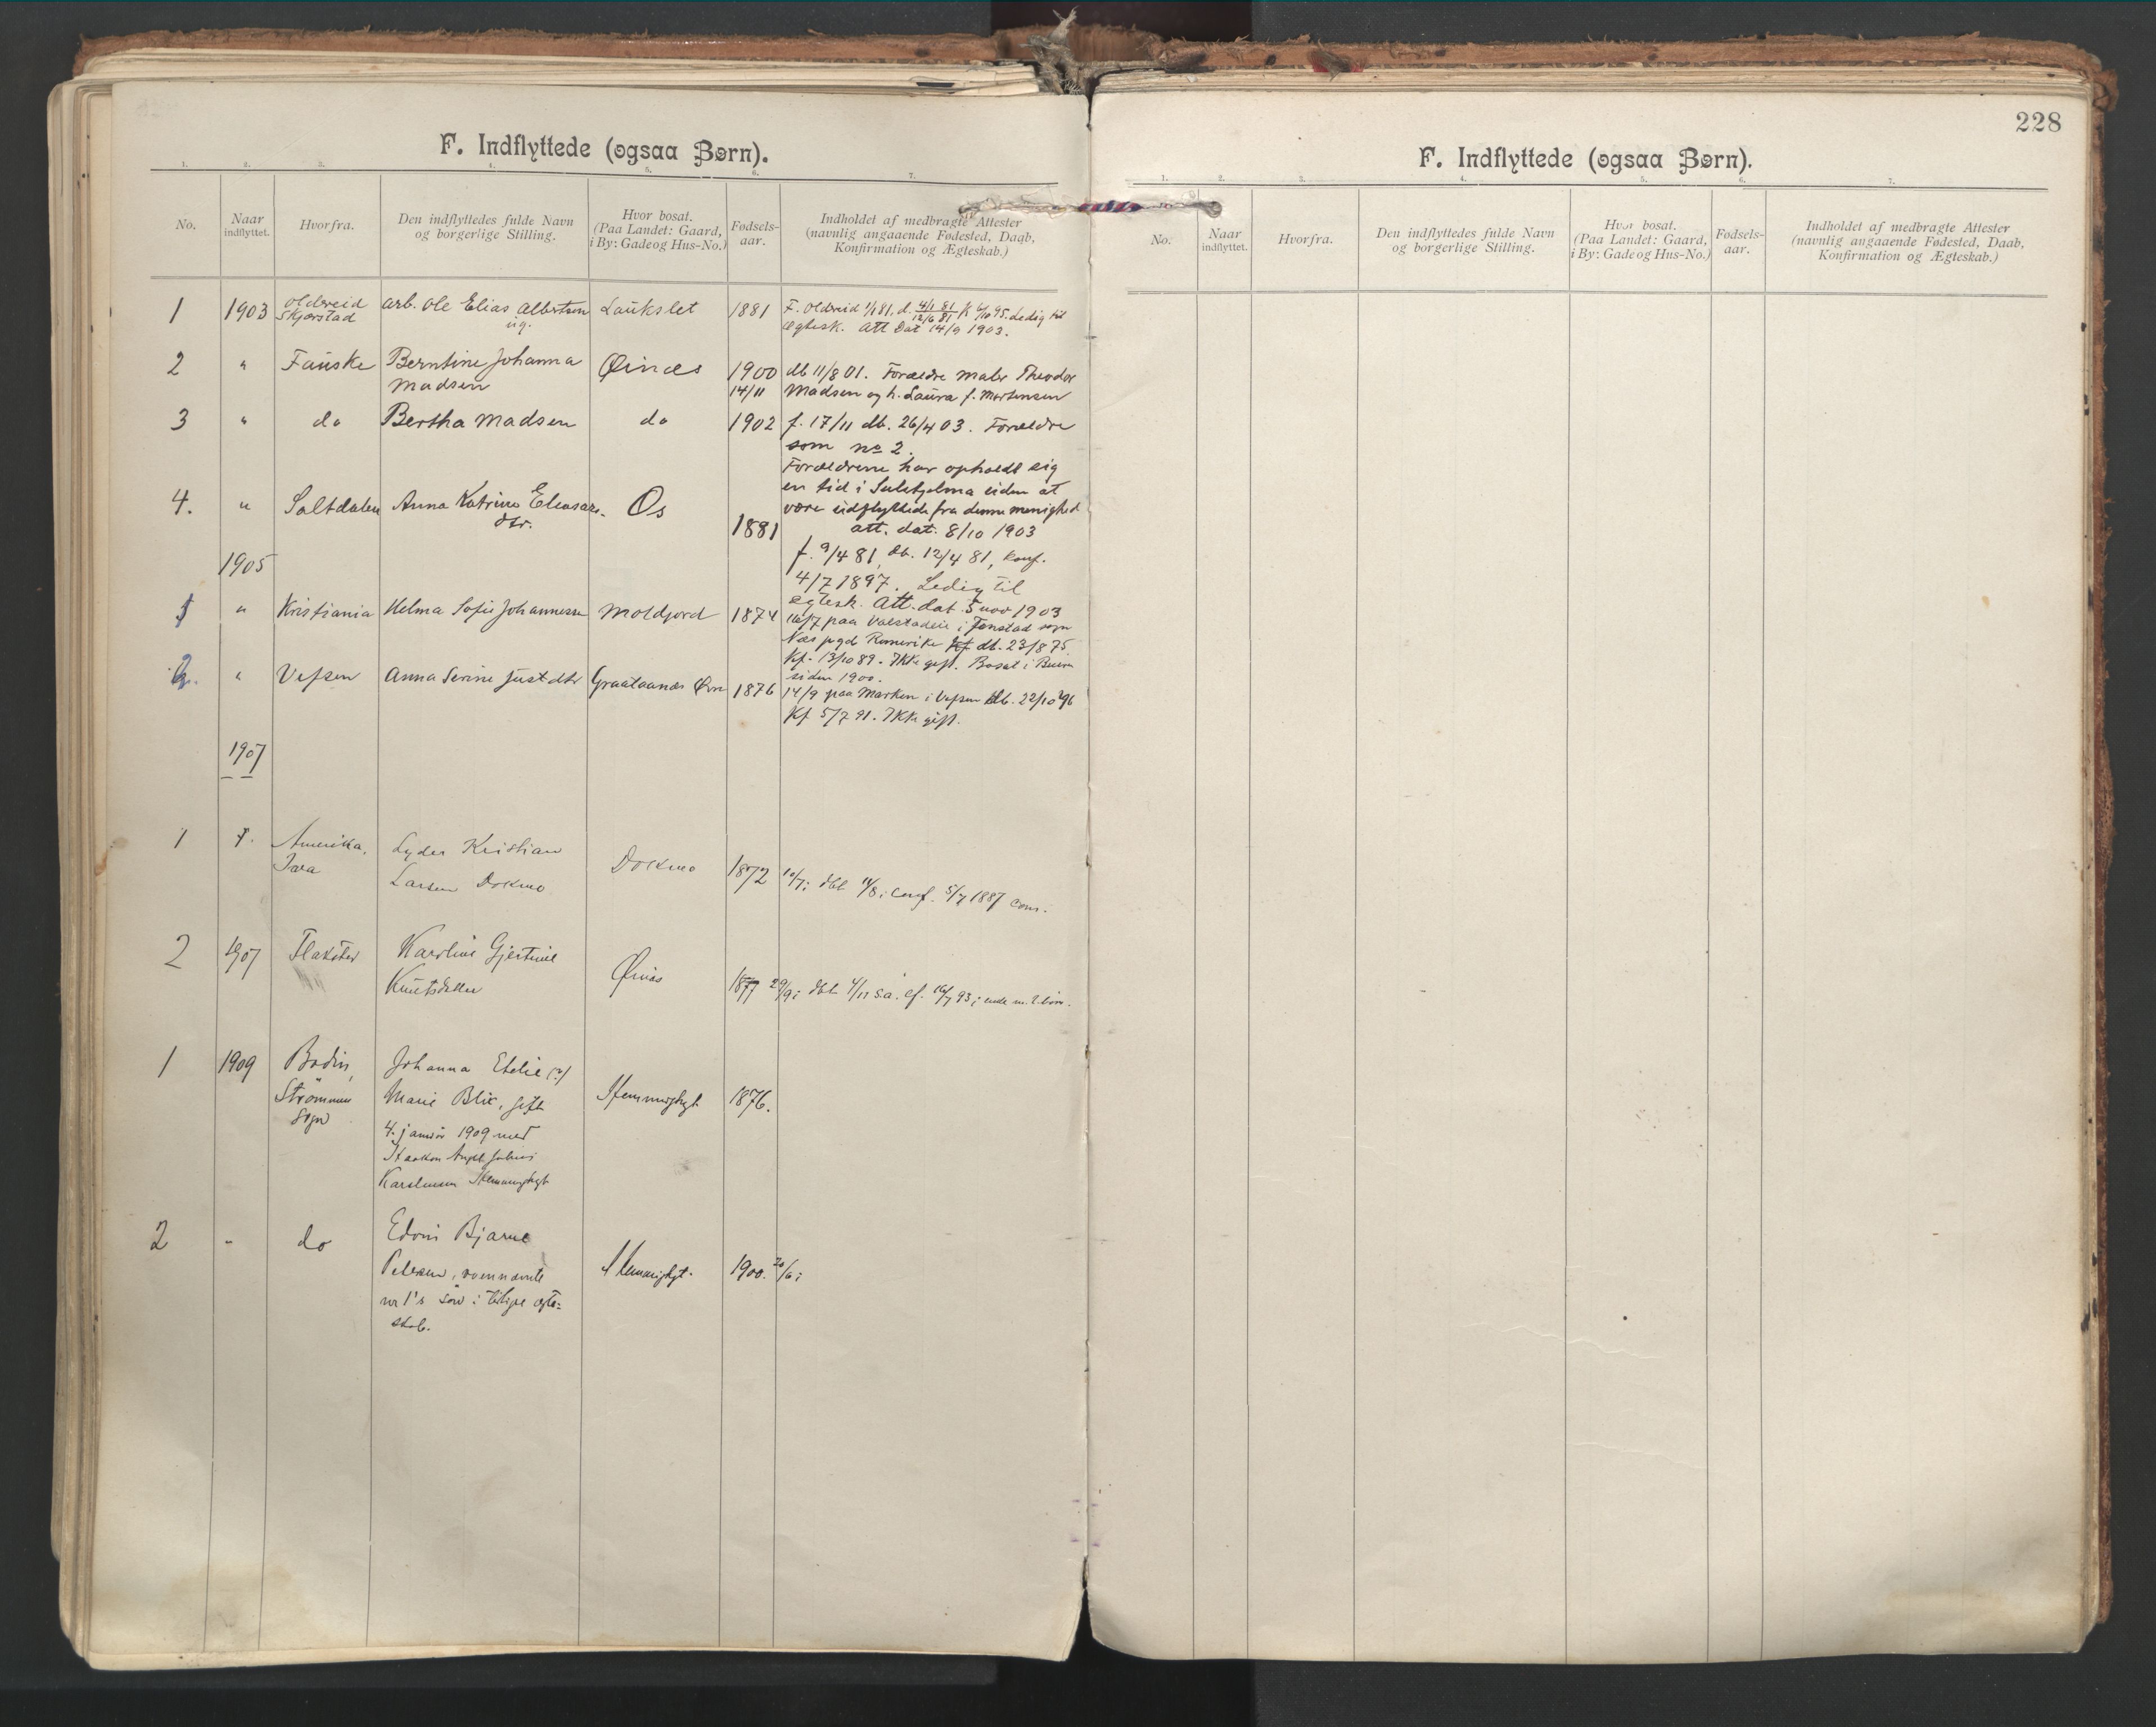 F. Indflyttede (ogsaa Børn).
1. 2. 3. 4. 5. 6. 7.
No.
Naar indflyttet.
Hvorfra.
Den indflyttedes fulde Navn og borgerlige Stilling.
Hvor bosat. (Paa Landet: Gaard, i By: Gade og Hus-No.)
Fødsels-aar.
Indholdet af medbragte Attester (navnlig angaaende Fødested, Daab, Konfirmation og Ægteskab.)
1 1903 Oldereid Skjerstad arb. Ole Elias Albertsen ug. Laukslet 1881 F. Oldereid 1/1 81, d. 4/1 81 12/6 81 K 6/10 95. Ledig til
ægtesk. Att dat 14/9 1903.
2 " Fauske Berntine Johanna Madsen Øinæs 1900 14/11 db 11/8 01. Forældre maler Theodor
Madsen og h. Laura f. Mortensen
3 " do Bertha Madsen do 1902 f. 17/11 db. 26/4 03. Forældre
som no 2.
Forældrene har opholdt sig
en tid i Sulitjelma siden at
være udflyttede fra denne menighed
att. dat. 8/10 1903
4. " Saltdalen Anna Katrine Eleasars- dtr. Os 1881
f. 9/4 81, db. 12/4 81, konf.
4/7 1897. Ledig til
egtesk. Att. dat. 5 nov 1903
1905
1 " Kristiania Helma Sofie Johannessen Moldjord 1874 16/7 paa Valstadeie i Fenstad sogn
Næs pgd Romerike Kf db. 23/8 75
Kf. 13/10 89. Ikke gift. Bosat i
siden 1900.
2. " Vefsen Anna Serine Justdtr Graataanæs 1876 14/9 paa Marken i Vefsen db. 22/10 96
Kf 5/7 91. Ikke gift.
1907
1 Amerika, Lyder Kristian
Larsen Dokmo Dokmo 1872 10/7; dbt 11/8; conf. 5/7 1887
2 1907 Flakstad Karoline Gjertine
Knutsdatter Øinæs 1877 29/9; dbt 4/11 s.a. cf. 16/7 93; enke m. 2 børn.
1 1909 Bodin,
Strömmen
Sogn
Johanna Etelie (?)
Marie Blix, gift
4. januar 1909 med
Haakon Angel Julius
Kareliussen Hemmingkyt
1876.
2 " do Edvin Bjarne
Petersen, ovennævnte
nr 1's søn i tidligere ægte-
skab.
1900. 20/6;
228
F. Indflyttede (ogsaa Børn).
1. 2. 3. 4. 5. 6. 7.
No.
Naar indflyttet.
Hvorfra.
Den indflyttedes fulde Navn og borgerlige Stilling.
Hvor bosat. (Paa Landet: Gaard, i By: Gade og Hus-No.)
Fødsels-aar.
Indholdet af medbragte Attester (navnlig angaaende Fødested, Daab, Konfirmation og Ægteskab.)